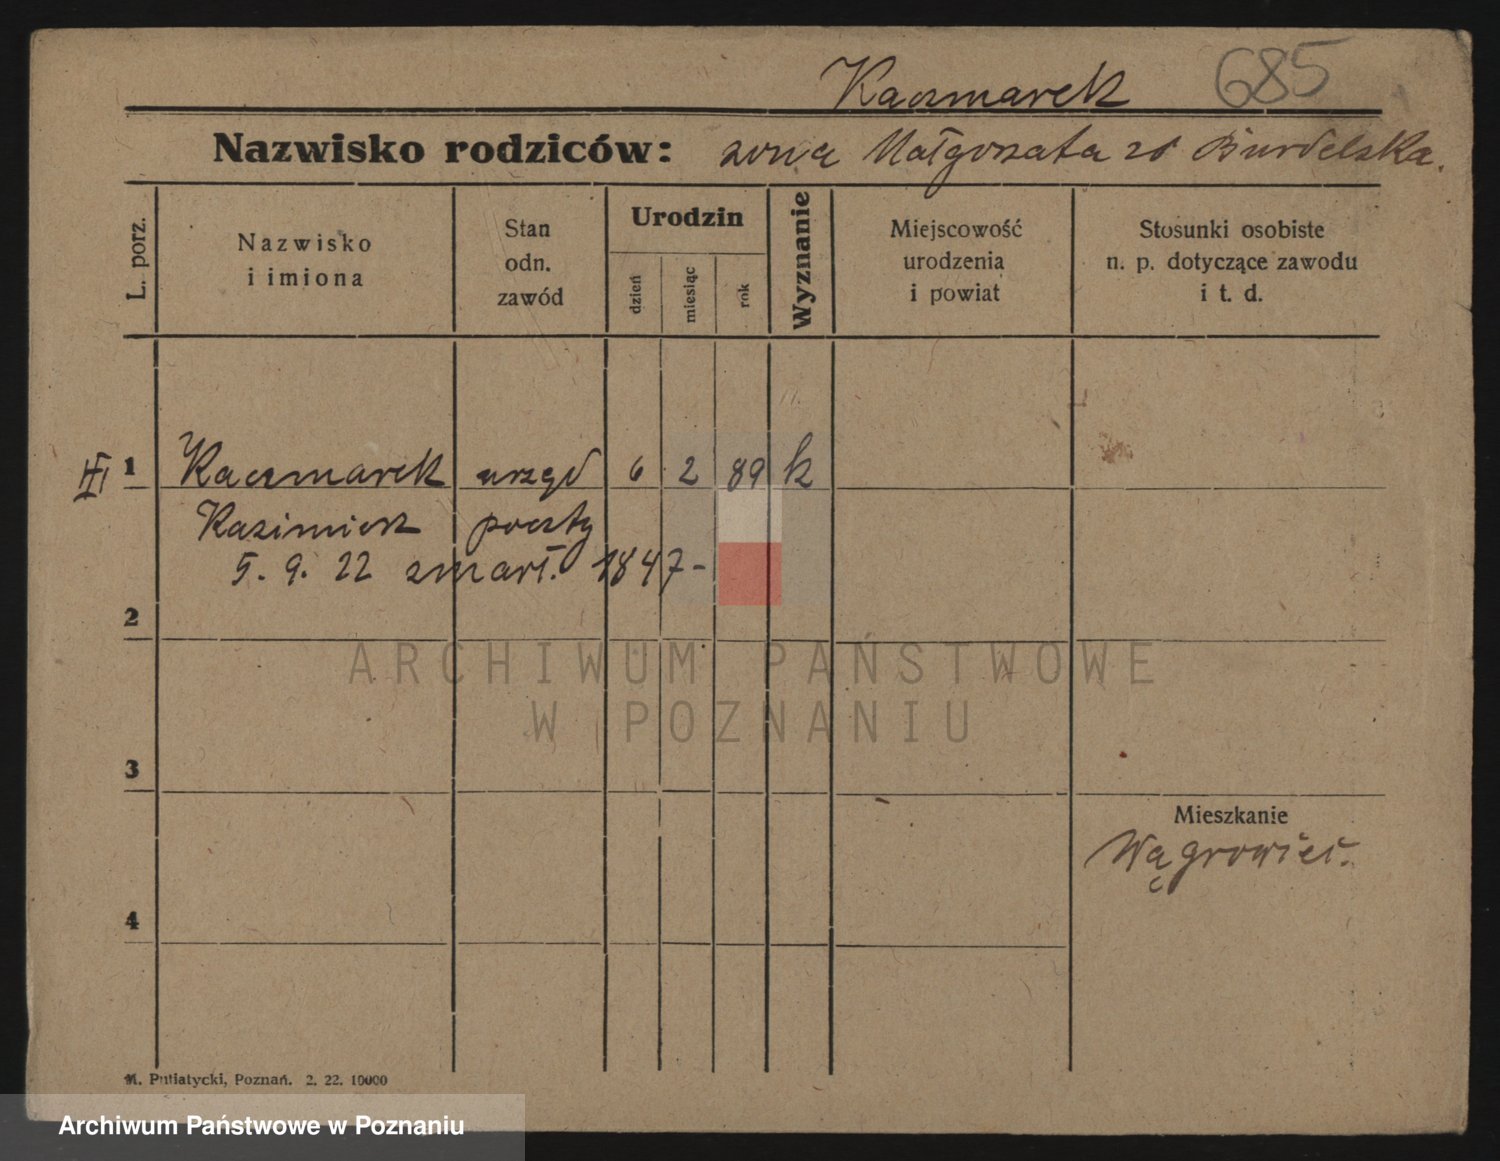 Kaczmarek 685
Nazwisko rodziców: zona Małgorzata zd Burdelska.
L. porz.
Nazwisko
i imiona
Stan
odn.
zawód
Urodzin
dzień
miesiąc
rok
Wyznanie
Miejscowość
urodzenia
i powiat
Stosunki osobiste
n. p. dotyczące zawodu
i t. d.
1 Kaczmarek urzęd 6 2 89 k
Kazimierz poczty
5. 9. 22 zmarł. 1847-
2
ARCHIWUM PAŃSTWOWE
W POZNANIU
3
Mieszkanie
Wągrowiec.
4
M. Putiatycki, Poznań. 2. 22. 10000
Archiwum Państwowe w Poznaniu